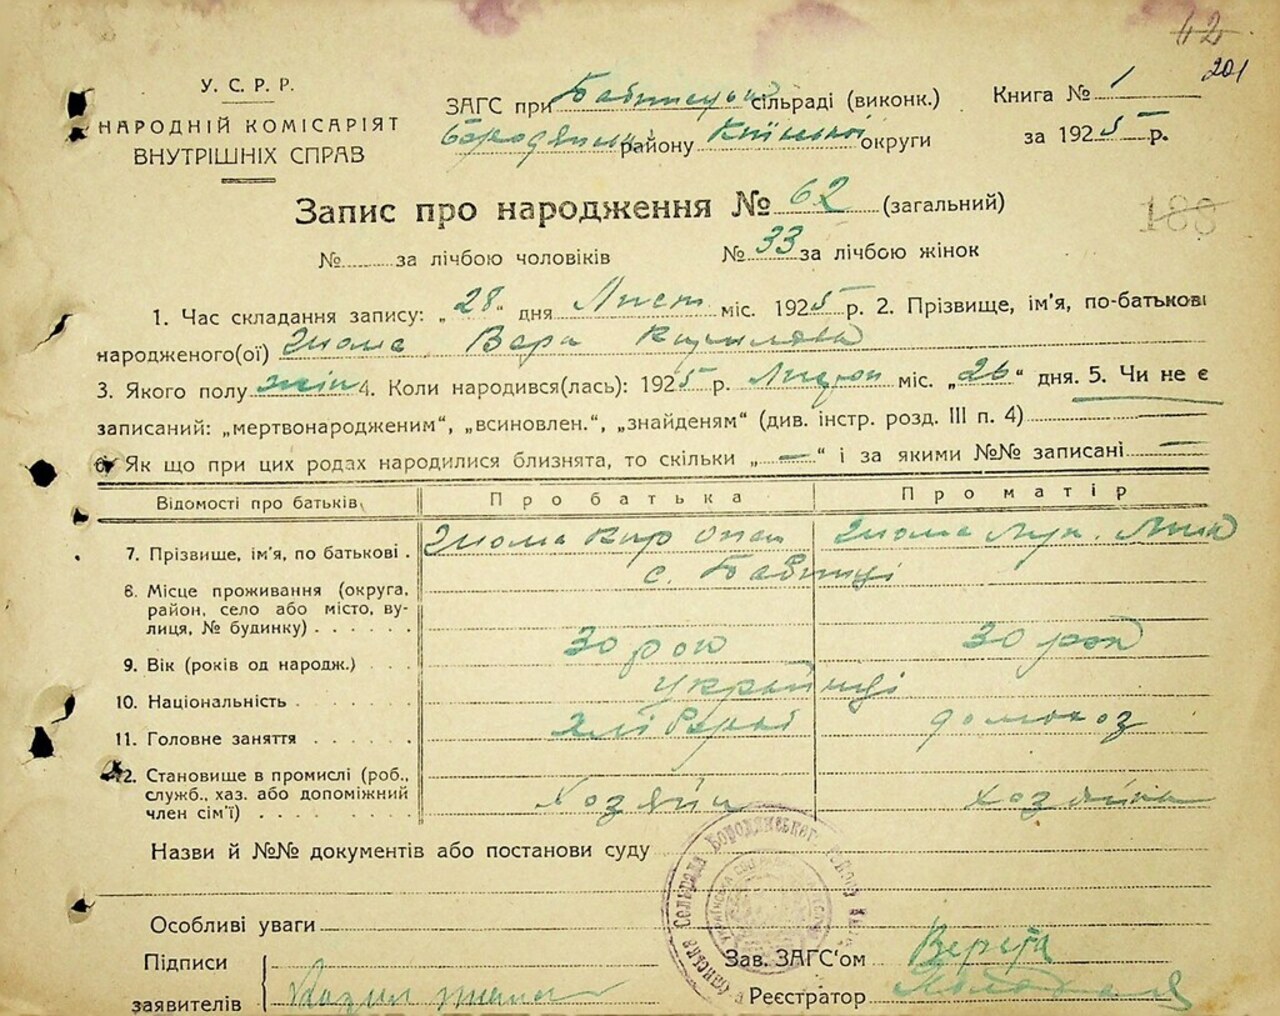 42
201
У. С. Р. Р.
НАРОДНІЙ КОМІСАРІЯТ
ВНУТРІШНІХ СПРАВ
ЗАГС при Бабинецькій сільраді (виконк.)
району Київської округи
Книга № 1
за 1925 р.
Запис про народження № 62 (загальний)
188
№ за лічбою чоловіків № 33 за лічбою жінок
1. Час складання запису: „28“ дня Лист міс. 1925 р. 2. Прізвище, ім'я, по-батькові
народженого(ої) Вера
3. Якого полу жін 4. Коли народився(лась): 1925 р. міс. „26“ дня. 5. Чи не є
записаний: „мертвонародженим“, „всиновлен.“, „знайденям“ (див. інстр. розд. III п. 4)
6. Як що при цих родах народилися близнята, то скільки „—“ і за якими №№ записані —
Відомості про батьків Про батька Про матір
7. Прізвище, ім'я, по батькові .
с. Бабинці
8. Місце проживання (округа,
район, село або місто, ву-
лиця, № будинку)
9. Вік (років од народж.) 30 рок 30 рок
10. Національність українці
11. Головне заняття хлібороб домохоз
12. Становище в промислі (роб.,
служб., хаз. або допоміжний
член сім'ї) хозяїн хозяйка
Назви й №№ документів або постанови суду
Особливі уваги
Підписи
заявителів
Зав. ЗАГС'ом Верета
Реєстратор